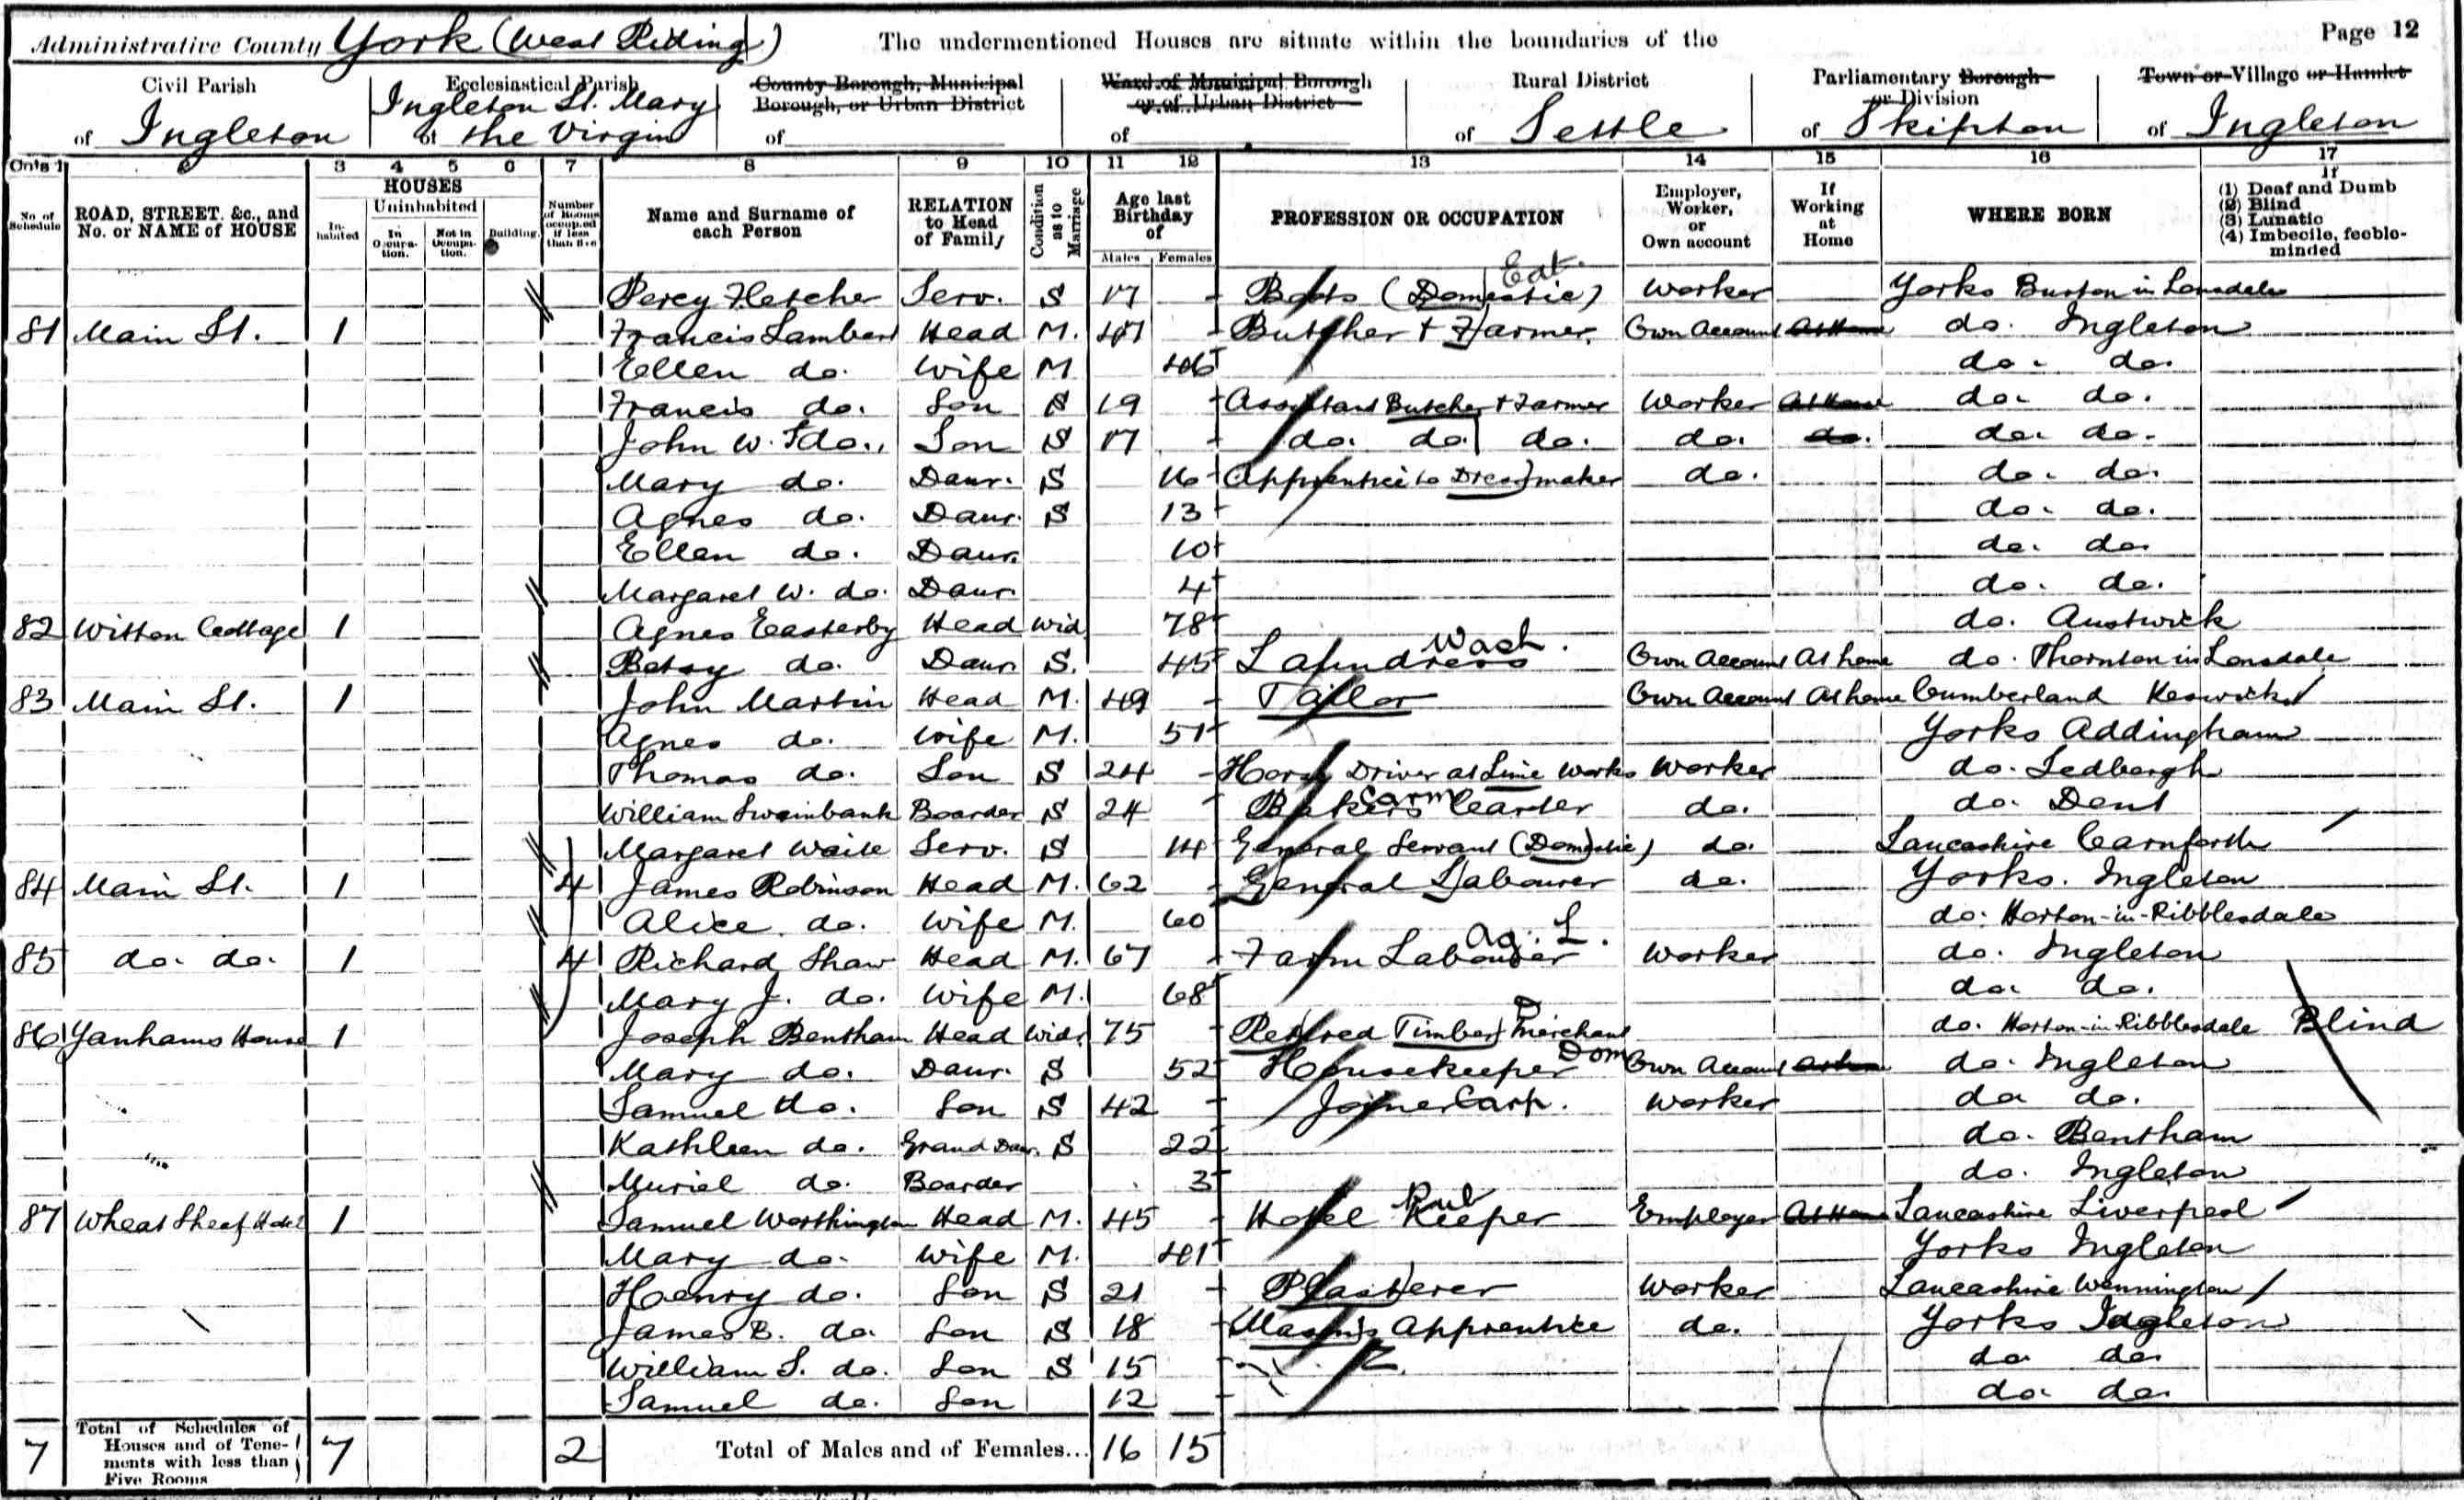 Administrative County York (West Riding) The undermentioned Houses are situate within the boundaries of the Page 12
Civil Parish of Ingleton
Ecclesiastical Parish of Ingleton St. Mary the Virgin
County Borough, Municipal Borough, or Urban District of
Ward of Municipal Borough or of Urban District of
Rural District of Settle
Parliamentary Borough or Division of Skipton
Town or Village or Hamlet of Ingleton
Cols 1 2 3 4 5 6 7 8 9 10 11 12 13 14 15 16 17
No. of Schedule
ROAD, STREET, &c., and No. or NAME of HOUSE
HOUSES
Inhabited
Uninhabited
In Occupation.
Not in Occupation.
Building.
Number of Rooms occupied if less than five
Name and Surname of each Person
RELATION to Head of Family
Condition as to Marriage
Age last Birthday of
Males Females
PROFESSION OR OCCUPATION
Employer, Worker, or Own account
If Working at Home
WHERE BORN
If
(1) Deaf and Dumb
(2) Blind
(3) Lunatic
(4) Imbecile, feeble-minded
Percy Fletcher Serv. S 17 Boots (Domestic) Eat. Worker Yorks Burton in Lonsdale
81 Main St. 1 Francis Lambert Head M. 47 Butcher + Farmer. Own Account At Home do. Ingleton
Ellen do. Wife M 46 do. do.
Francis do. Son S 19 Assistant Butcher + Farmer Worker At Home do. do.
John W. F do. Son S 17 do. do. do. do. do. do. do.
Mary do. Daur. S 16 Apprentice to Dressmaker do. do. do.
Agnes do. Daur. S 13 do. do.
Ellen do. Daur. 10 do. do.
Margaret W. do. Daur. 4 do. do.
82 Witton Cottage 1 Agnes Easterby Head Wid 78 do. Austwick
Betsy do. Daur. S. 45 Laundress Wash. Own Account At home do. Thornton in Lonsdale
83 Main St. 1 John Martin Head M. 49 Tailor Own Account At home Cumberland Keswick
Agnes do. Wife M. 51 Yorks Addingham
Thomas do. Son S 24 Horse Driver at Lime Works Worker do. Sedbergh
William Swainbank Boarder S 24 Bakers Carter Carm do. do. Dent
Margaret Waite Serv. S 14 General Servant (Domestic) do. Lancashire Carnforth
84 Main St. 1 4 James Robinson Head M. 62 General Labourer do. Yorks. Ingleton
Alice do. Wife M. 60 do. Horton-in-Ribblesdale
85 do. do. 1 4 Richard Shaw Head M. 67 Farm Labourer Ag. L. Worker do. Ingleton
Mary J. do. Wife M. 68 do. do.
86 Yanhams House 1 Joseph Bentham Head Widr 75 Retired Timber Merchant D do. Horton-in-Ribblesdale Blind
Mary do. Daur. S 52 Housekeeper Dom Own Account At home do. Ingleton
Samuel do. Son S 42 Joiner Carp. Worker do. do.
Kathleen do. Grand Daur. S 22 do. Bentham
Muriel do. Boarder 3 do. Ingleton
87 Wheat Sheaf Hotel 1 Samuel Worthington Head M. 45 Hotel Keeper Pub Employer At Home Lancashire Liverpool
Mary do. Wife M. 41 Yorks Ingleton
Henry do. Son S 21 Plasterer Worker Lancashire Wennington
James B. do. Son S 18 Mason's Apprentice do. Yorks Ingleton
William S. do. Son S 15 do. do.
Samuel do. Son 12 do. do.
7 Total of Schedules of Houses and of Tenements with less than Five Rooms 7 2 Total of Males and of Females... 16 15